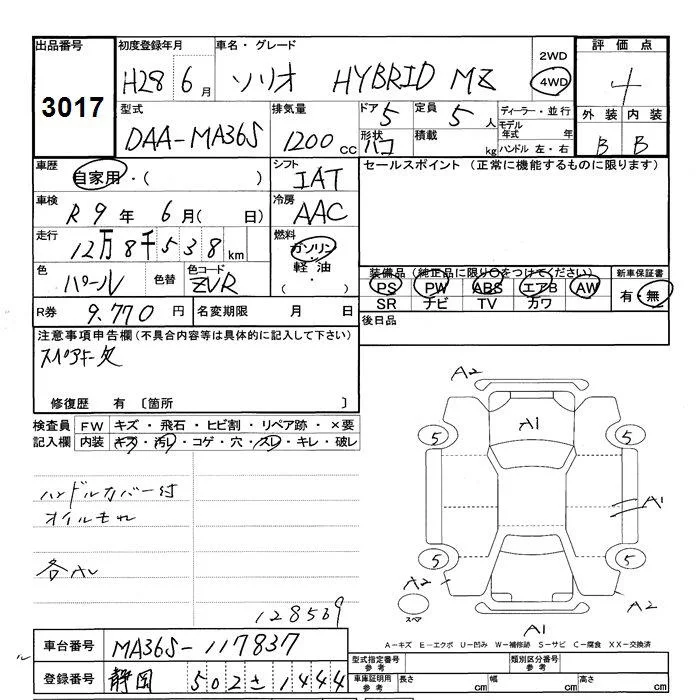 出品番号
3017
初度登録年月
H28 6月
車名・グレード
ソリオ HYBRID MZ
2WD
4WD
評価点
4
外装 内装
B B
型式
DAA-MA36S
排気量
1200 cc
ドア 5
定員 5人
形状 ハコ
積載 kg
ディーラー・並行
モデル年式 年
ハンドル 左・右
車歴
自家用・( )
シフト
IAT
セールスポイント (正常に機能するものに限ります)
車検
R 9年 6月( 日)
冷房
AAC
走行
12万8千538km
燃料
ガソリン
軽油
・( )
色
パール
色替
色コード
ZVR
装備品 (純正品に限り○をつけてください)
PS PW ABS エアB AW
SR ナビ TV カワ
新車保証書
有・無
R券 9,770円
名変期限 月 日
後日品
注意事項申告欄(不具合内容等は具体的に記入して下さい)
スペアキー欠
修復歴 有 〔箇所 〕
検査員記入欄
FW キズ・飛石・ヒビ割・リペア跡・×要
内装 キズ・汚レ・コゲ・穴・スレ・キレ・破レ
ハンドルカバー付
オイルモレ
各AL
128539
A2
A1
5 5
A1
5 5
A2
A2
スペア
A1
A−キズ E−エクボ U−凹み W−補修跡 S−サビ C−腐食 XX−交換済
車台番号 MA36S-117837
登録番号 静岡 502 さ 1444
型式指定番号 参考
類別区分番号 参考
車庫証明用 参考
長さ cm
幅 cm
高さ cm